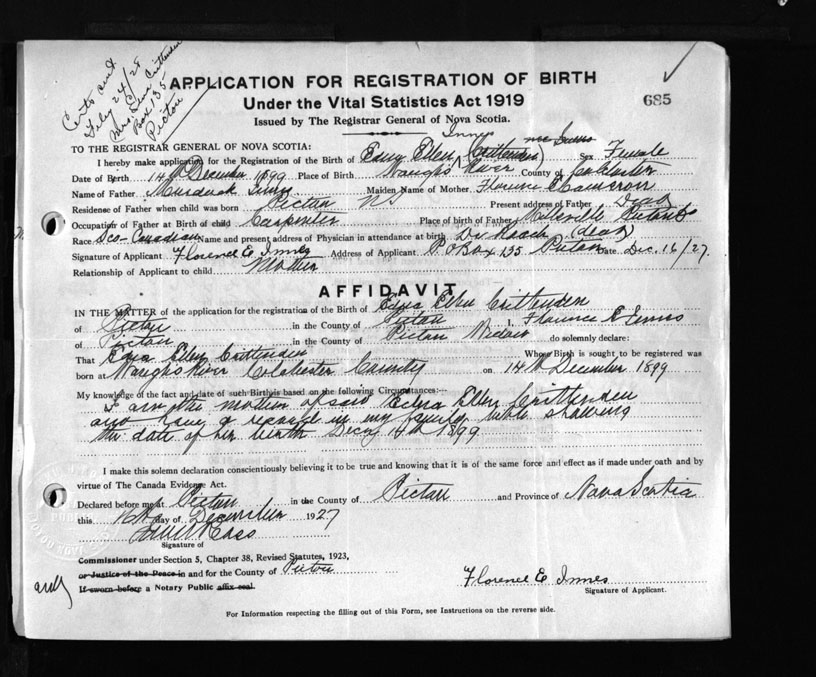 Certs sent
July 24/28
Mrs Edna Crittenden
Box 135
Pictou
APPLICATION FOR REGISTRATION OF BIRTH
Under the Vital Statistics Act 1919
Issued by The Registrar General of Nova Scotia.
685
TO THE REGISTRAR GENERAL OF NOVA SCOTIA:
Innes nee Innes
I hereby make application for the Registration of the Birth of Edna Ellen (Crittenden) Sex Female
Date of Birth 14th December 1899 Place of Birth Waughs River County of Colchester
Name of Father Murdock Innes Maiden Name of Mother Florence E Cameron
Residence of Father when child was born Pictou NS Present address of Father Dead
Occupation of Father at Birth of child Carpenter Place of birth of Father Pictou Co
Race Sco-Canadian Name and present address of Physician in attendance at birth Dr Roach (dead)
Signature of Applicant Florence E. Innes Address of Applicant P.O Box 135 Pictou Date Dec. 16/27.
Relationship of Applicant to child Mother
AFFIDAVIT
IN THE MATTER of the application for the registration of the Birth of Edna Ellen Crittenden
of Pictou in the County of Pictou I, Florence E Innes
of Pictou in the County of Pictou Widow do solemnly declare:
That Edna Ellen Crittenden Whose Birth is sought to be registered was
born at Waughs River Colchester County on 14th December 1899
My knowledge of the fact and date of such Birth is based on the following Circumstances:—
I am the mother of said Edna Ellen Crittenden
and have a record in my family bible showing
the date of her birth Decr 14th 1899
I make this solemn declaration conscientiously believing it to be true and knowing that it is of the same force and effect as if made under oath and by
virtue of The Canada Evidence Act.
Declared before me at Pictou in the County of Pictou and Province of Nova Scotia
this 16th day of December 1927
Signature of
Commissioner under Section 5, Chapter 38, Revised Statutes, 1923,
or Justice of the Peace in and for the County of Pictou
If sworn before a Notary Public affix seal.
Florence E Innes
Signature of Applicant.
For Information respecting the filling out of this Form, see Instructions on the reverse side.